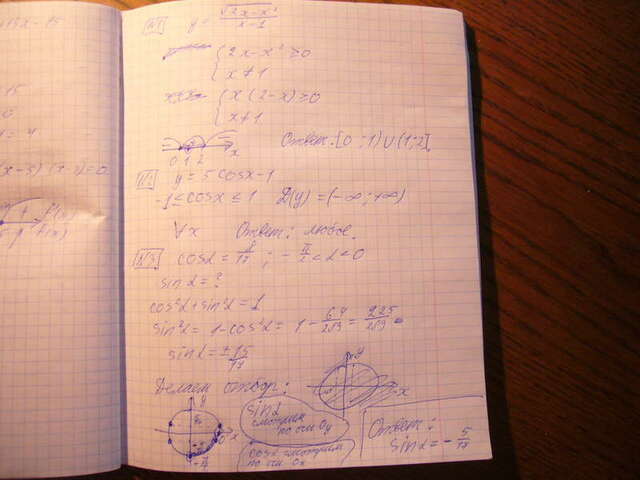 N1. y = √(2x-x²) / (x-1)
{ 2x-x² ≥ 0
{ x ≠ 1
{ x(2-x) ≥ 0
{ x ≠ 1
0 1 2 x
Ответ: [0;1)∪(1;2].
N2. y = 5cosx-1
-1 ≤ cosx ≤ 1 D(y) = (-∞;+∞)
∀x Ответ: любое.
N3. cosα = 8/17 ; -π/2 < α < 0
sinα = ?
cos²α + sin²α = 1
sin²α = 1-cos²α = 1 - 64/289 = 225/289
sinα = ±15/17
Делаем отбор:
sinα смотрим по оси Oy
cosα смотрим по оси Ox
Ответ:
sinα = -5/17